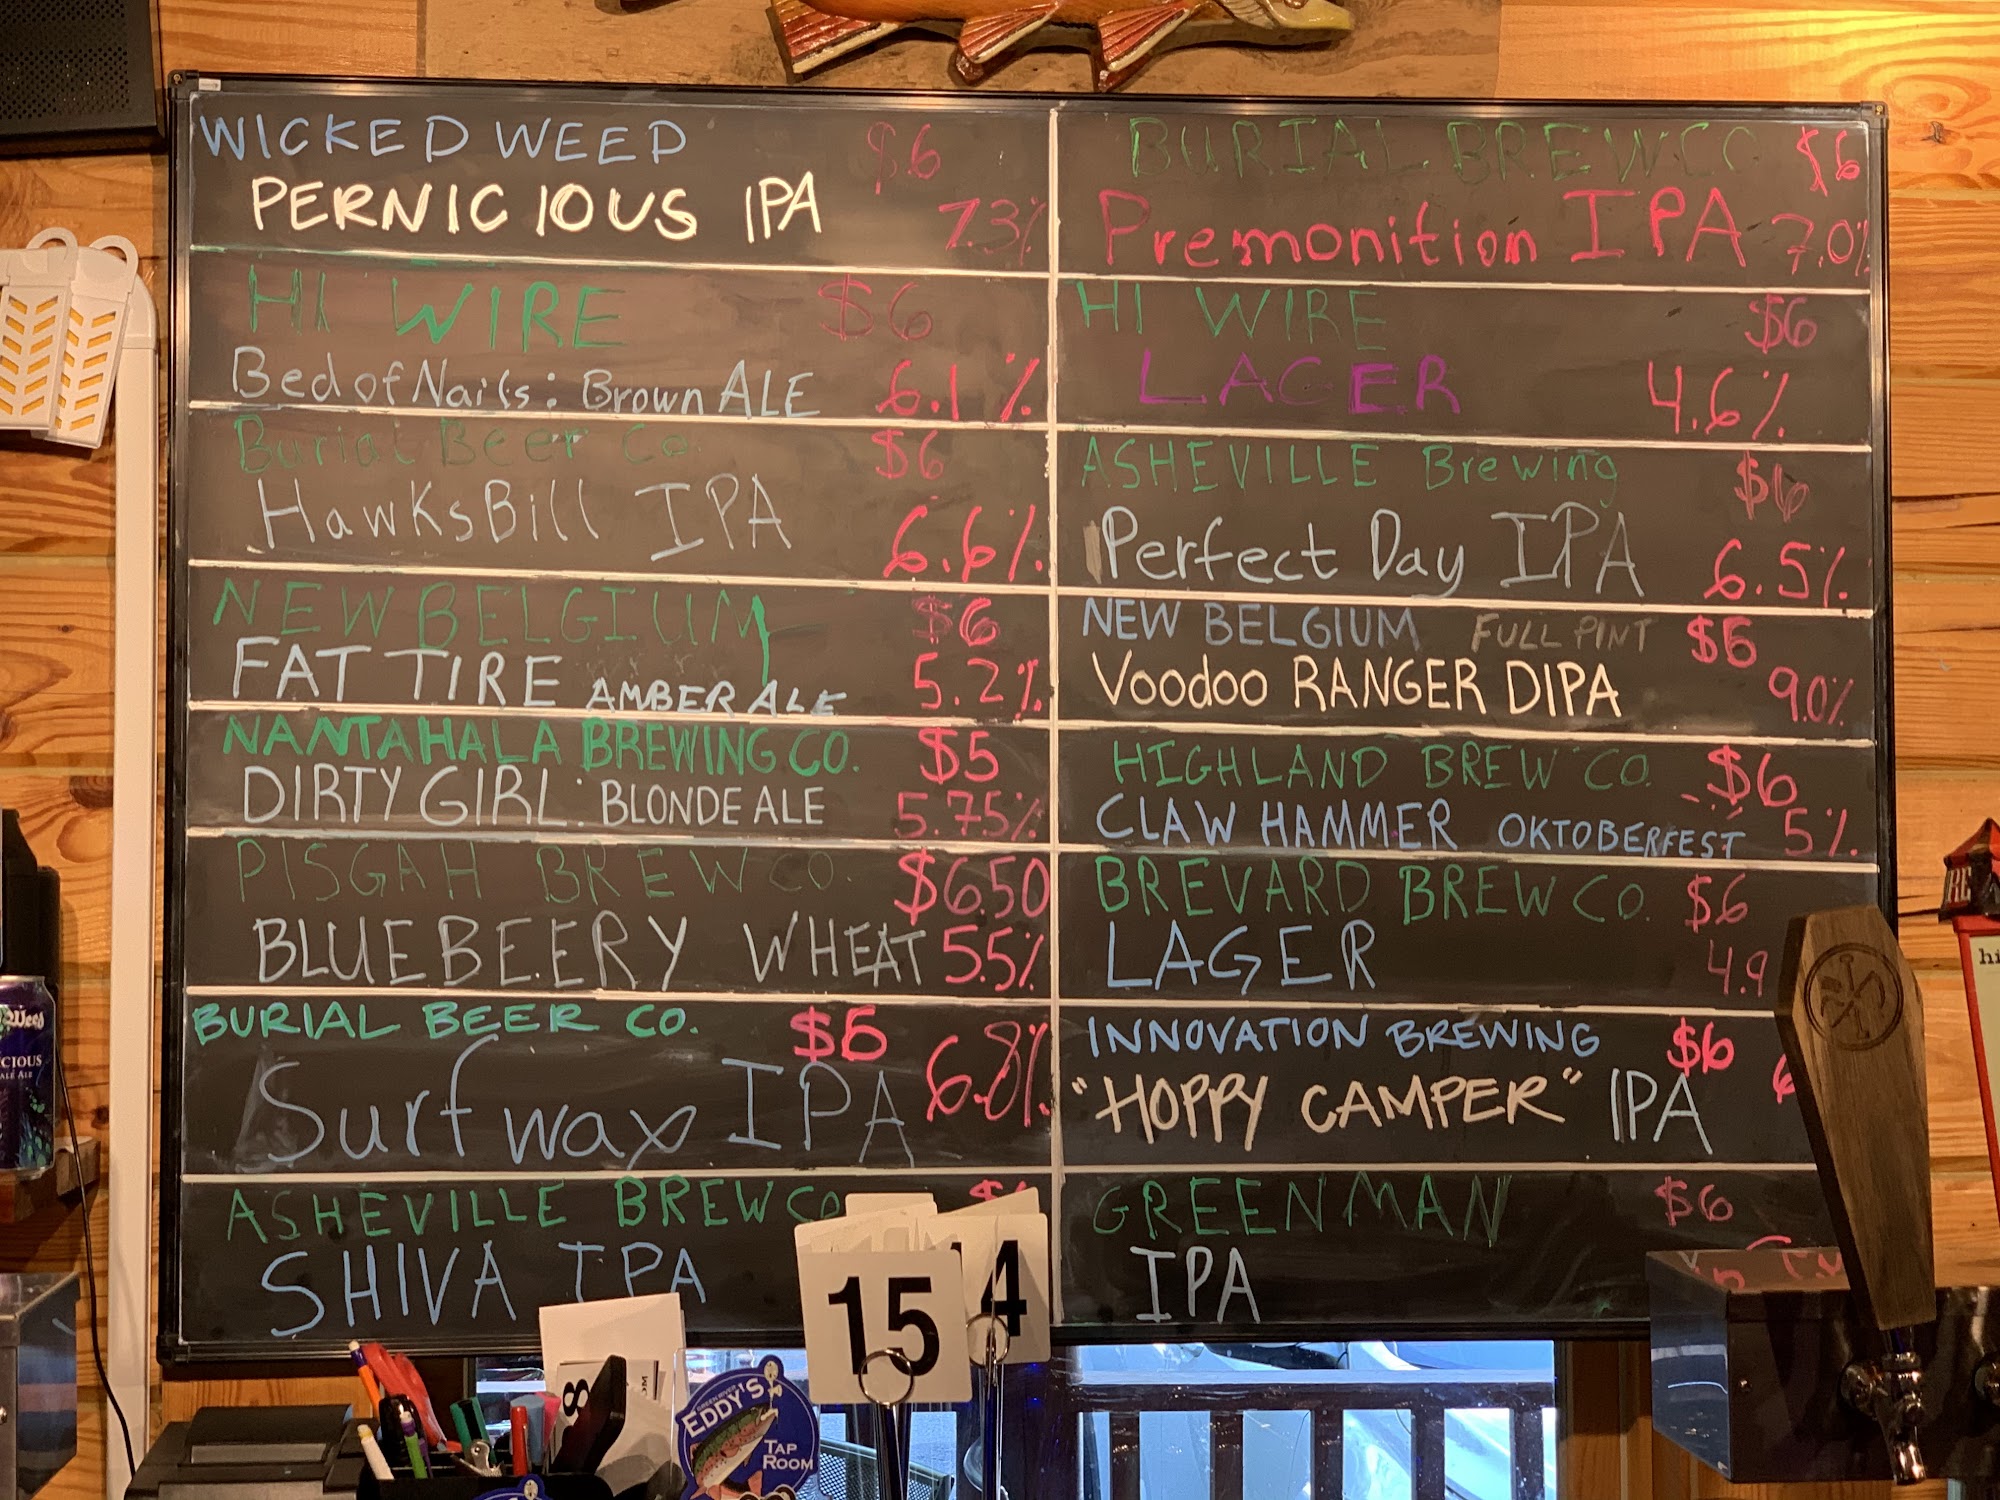 WICKED WEED $6
PERNICIOUS IPA 7.3%
HI WIRE $6
Bed of Nails: Brown ALE 6.1%
Burial Beer Co. $6
HawKsBill IPA 6.6%
NEW BELGIUM $6
FAT TIRE AMBER ALE 5.2%
NANTAHALA BREWING CO. $5
DIRTY GIRL: BLONDE ALE 5.75%
PISGAH BREW CO. $650
BLUEBEERY WHEAT 5.5%
BURIAL BEER CO. $6
Surfwax IPA 6.8%
ASHEVILLE BREW CO
SHIVA IPA
BURIAL BREW CO $6
Premonition IPA 7.0%
HI WIRE $6
LAGER 4.6%
ASHEVILLE Brewing $6
Perfect Day IPA 6.5%
NEW BELGIUM FULL PINT $6
Voodoo RANGER DIPA 9.0%
HIGHLAND BREW CO. $6
CLAW HAMMER OKTOBERFEST 5%
BREVARD BREW CO. $6
LAGER 4.9
INNOVATION BREWING $6
"HOPPY CAMPER" IPA
GREEN MAN $6
IPA
15
14
8
EDDY'S
TAP
ROOM
Weed
CIOUS
ALE
hi